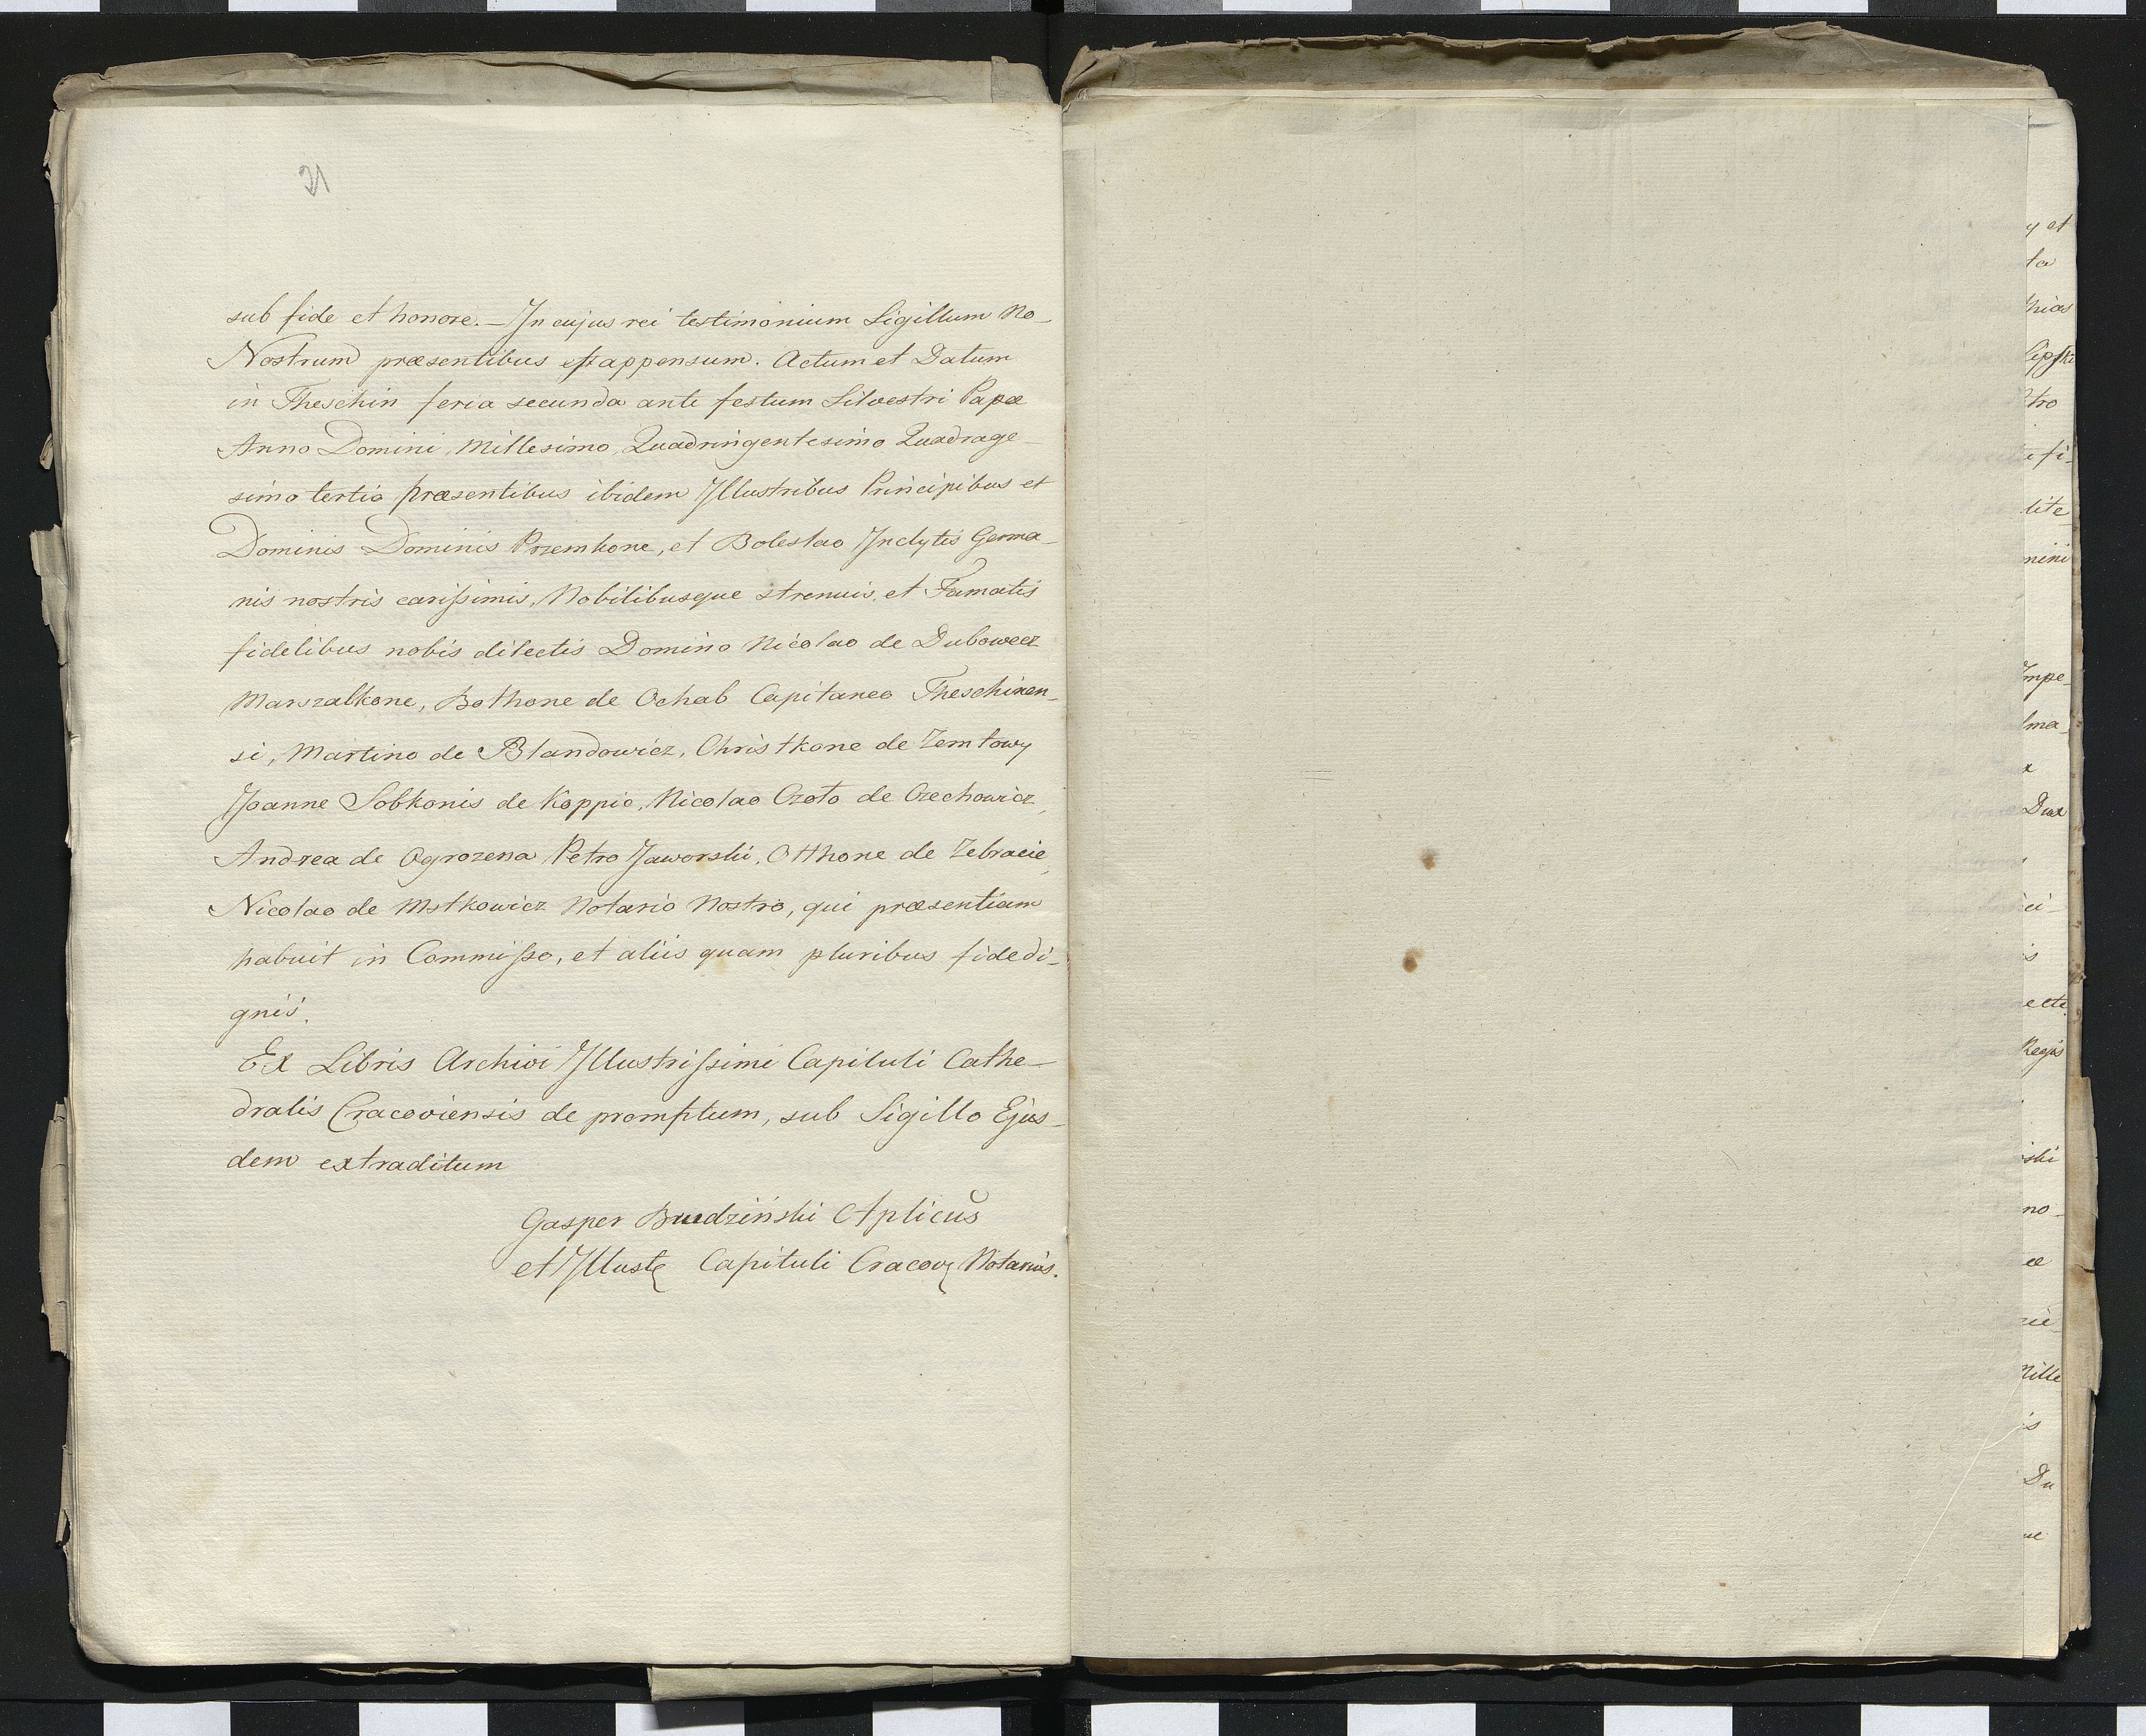 21
sub fide et honore. — In cujus rei testimonium Sigillum No-
Nostrum præsentibus est appensum. Actum et Datum
in Theschin feria secunda ante festum Silvestri Papæ
Anno Domini Millesimo Quadringentesimo Quadrage-
simo tertio præsentibus ibidem Illustribus Principibus et
Dominis Dominis Przemkone, et Boleslao Inclytis Germa-
nis nostris carissimis, Nobilibusque strenuis, et Famatis
fidelibus nobis dilectis Domino Nicolao de Dubowecz
Marszalkone, Bothone de Ochab Capitaneo Theschinen-
si, Martino de Blandowicz, Christkone de Zemtowy
Joanne Sobkonis de Koppic, Nicolao Czoto de Czechowicz,
Andrea de Ogrozena, Petro Jaworski, Otthone de Zebracie,
Nicolao de Mstkowicz Notario Nostro, qui præsentiam
habuit in Commisso, et aliis quam pluribus fidedi-
gnis.
Ex Libris Archivi Illustrissimi Capituli Cathe-
dralis Cracoviensis de promptum, sub Sigillo Ejus-
dem extraditum
Gasper Brudziński Aplicus
et Illust Capituli Cracov Notarius.
y et
ta
thias
Lipski
tro
fi-
lite
mini
Impe-
lma-
x
Dux
ci-
is
ecte
Regis
ski
no-
æ
Mille
is
Du